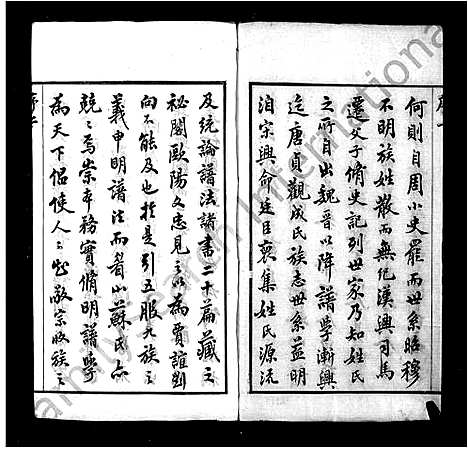 何則自周小史罷而世系昭穆
不明族姓散而無紀漢興司馬
遷父子脩史記列世家乃知姓氏
之所自出魏晉以降譜學漸興
迄唐貞觀成氏族志世系益明
洎宋興命廷臣裒集姓氏源流
及統論譜法諸書二十篇藏之
祕閣歐陽文忠見之以為賈誼劉
向不能及也於是引五服九族之
義申明譜法而眉山蘇氏亦
兢兢焉崇本務實脩明譜學
為天下倡使人人知敬宗收族之
序二
FamilySearch International